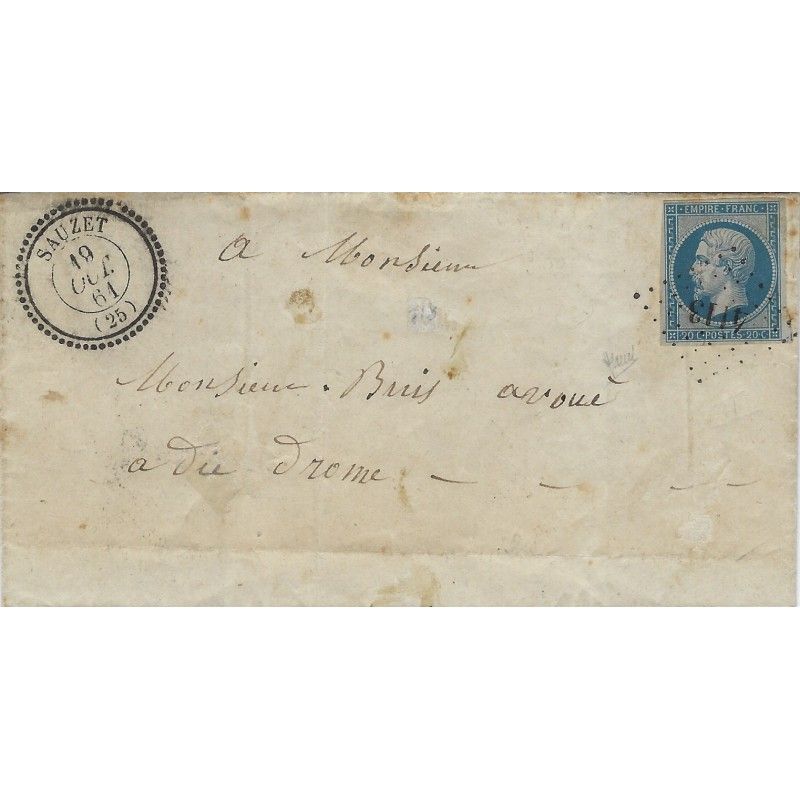 SAUZET
19
OCT.
61
(25)
EMPIRE · FRANC
20 C · POSTES · 20 C
a Monsieur
Monsieur Buis avoué
a die drome